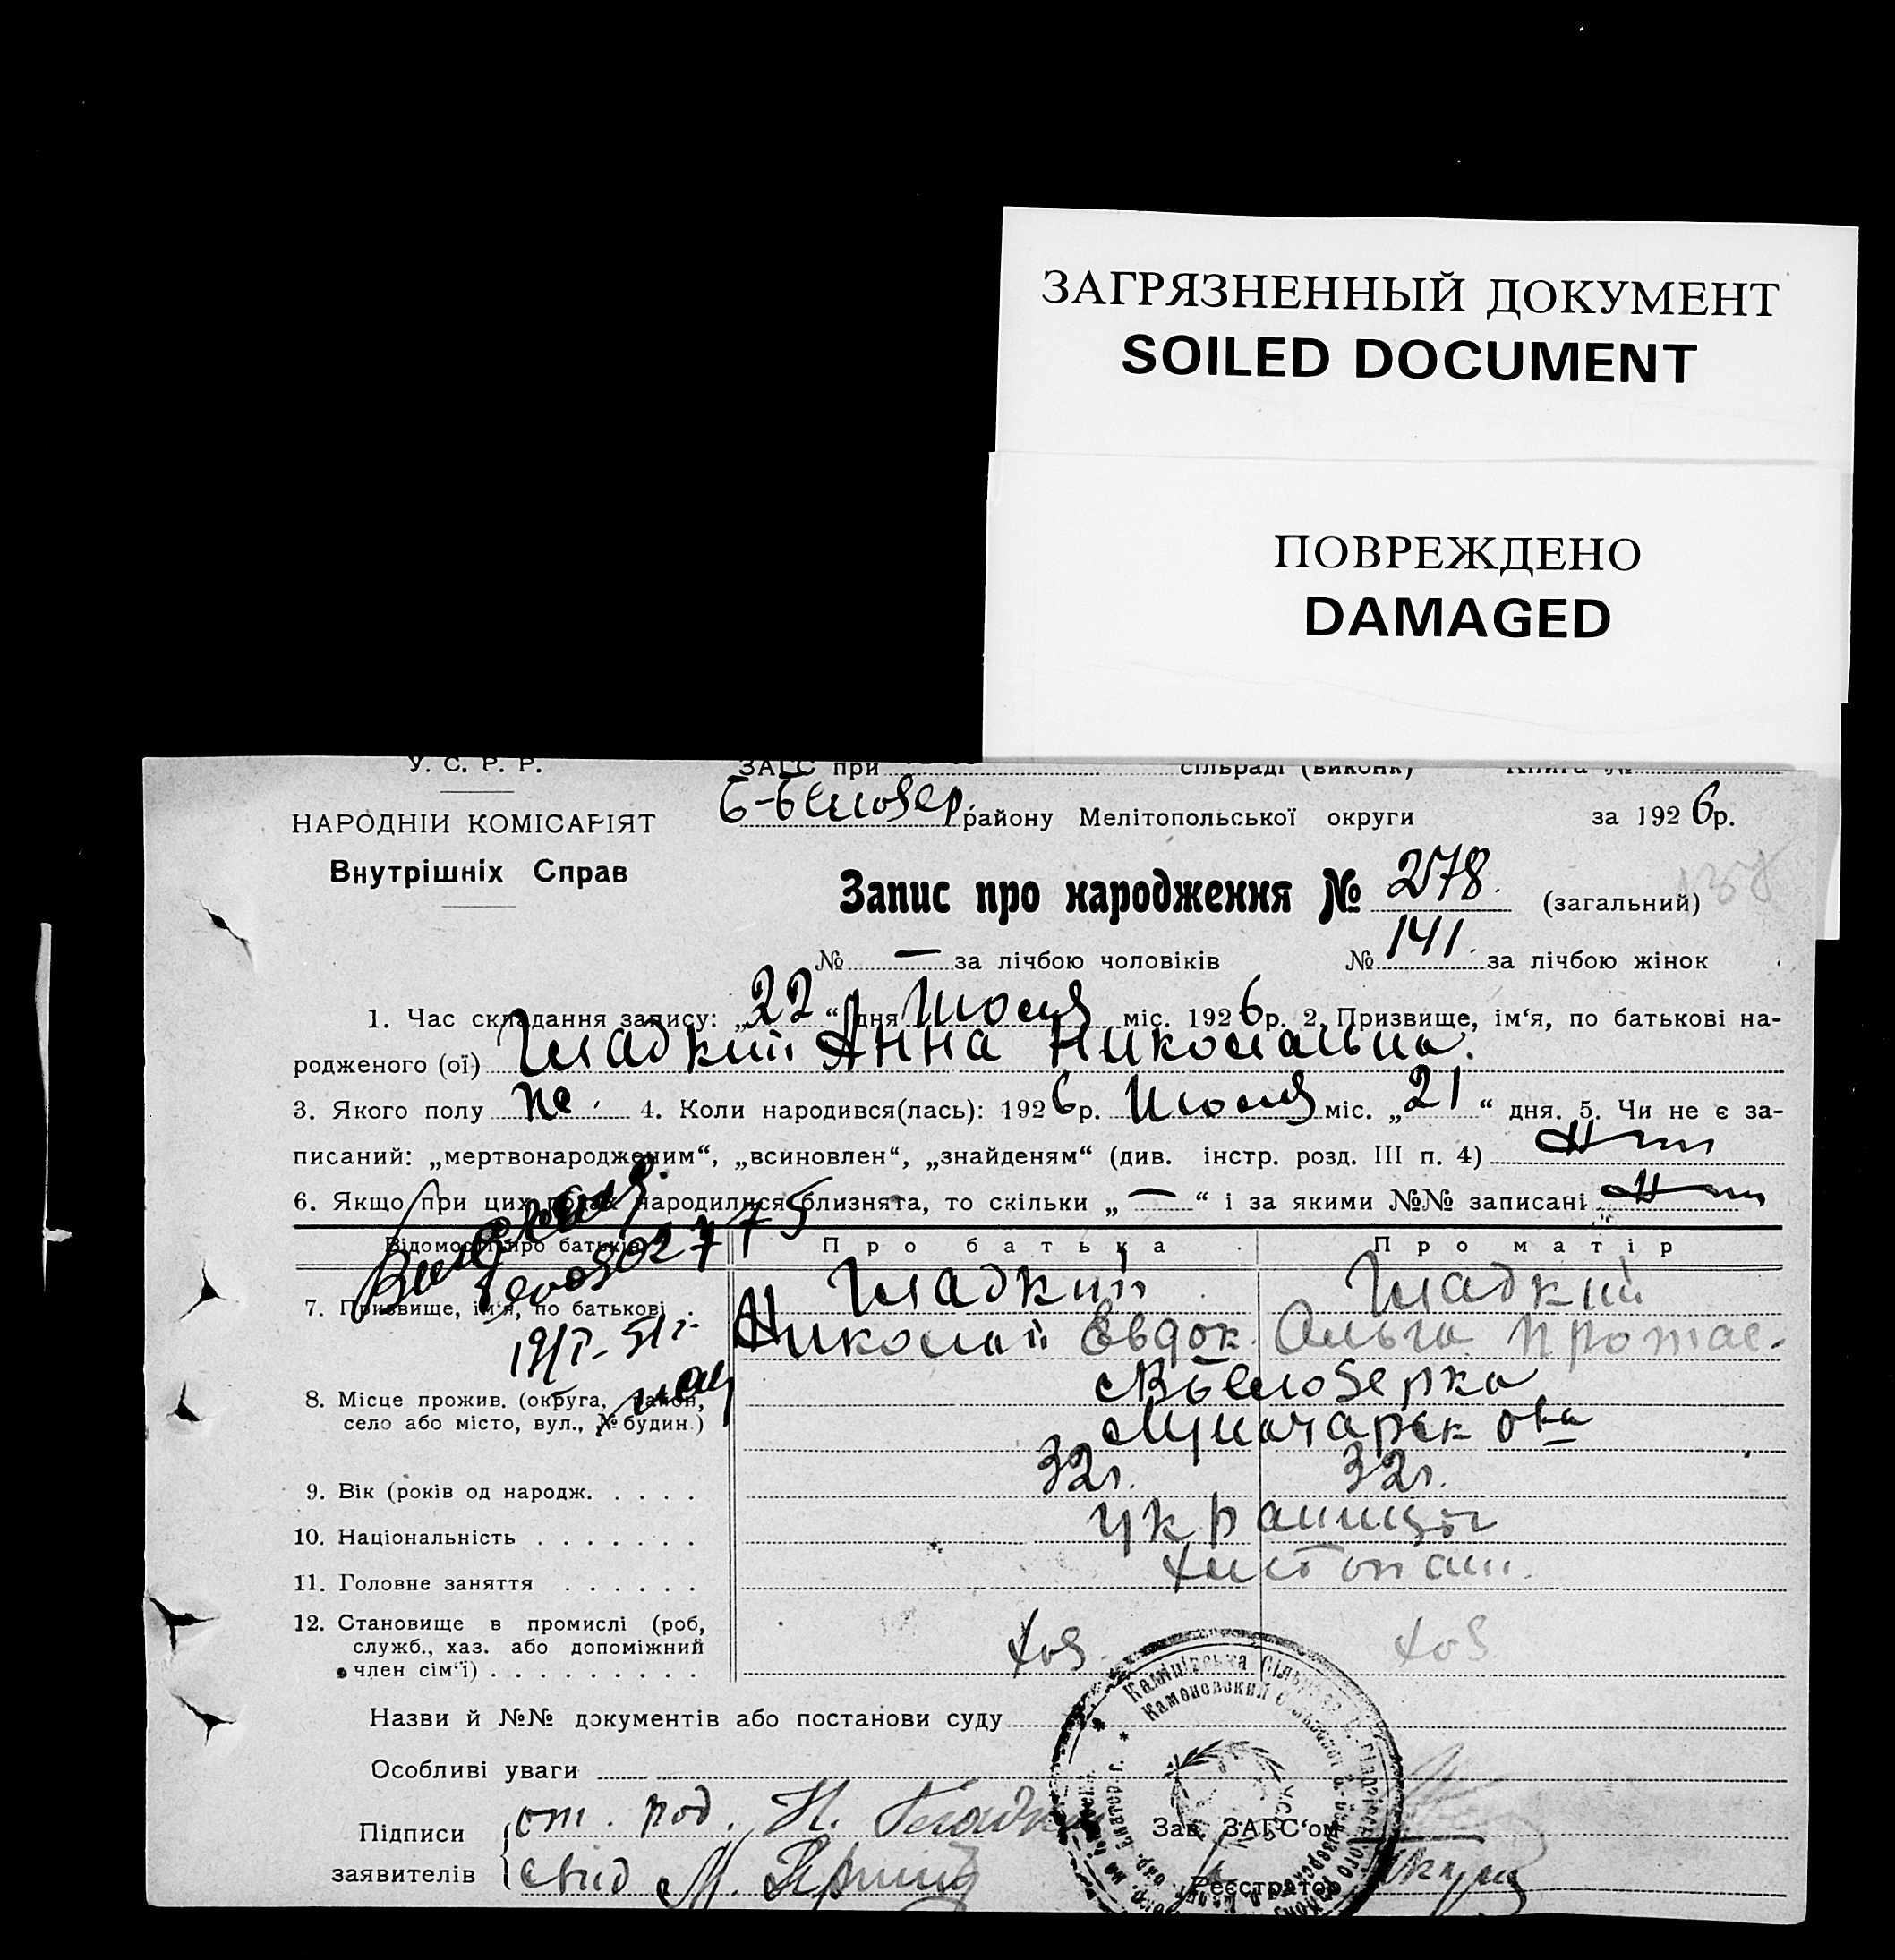 ЗАГРЯЗНЕННЫЙ ДОКУМЕНТ
SOILED DOCUMENT
ПОВРЕЖДЕНО
DAMAGED
У. С. Р. Р.
ЗАГС при сільраді (виконк) Книга №
НАРОДНІЙ КОМІСАРІЯТ
Внутрішніх Справ
Б-Белозер. району Мелітопольської округи за 1926 р.
Запис про народження № 278. (загальний)
№ — за лічбою чоловіків № 141. за лічбою жінок
1. Час складання запису: „22“ дня Июля міс. 1926 р. 2. Призвище, ім‘я, по батькові на-
родженого (ої) Гладкий Анна Николаевна.
3. Якого полу же. 4. Коли народився(лась): 1926 р. Июля міс. „21“ дня. 5. Чи не є за-
писаний: „мертвонародженим“, „всиновлен“, „знайденям“ (див. інстр. розд. III п. 4) Нет
6. Якщо при цих родах народилися близнята, то скільки „—“ і за якими №№ записані Нет
Відомости про батьків Про батька Про матір
7. Призвище, ім‘я, по батькові Гладкий Гладкий
Николай Евдок. Ольга Протас.
8. Місце прожив. (округа, район, Белозерка
село або місто, вул., № будин.) Луначарск
9. Вік (років од народж. 32 г. 32 г.
10. Національність украинцы
11. Головне заняття хлебопаш.
12. Становище в промислі (роб,
служб., хаз. або допоміжний
член сім‘ї) хоз. хоз
Назви й №№ документів або постанови суду
Особливі уваги
Підписи от. род. Н. Гладкий Зав. ЗАГС‘ом
заявителів свид М. Реєстратор